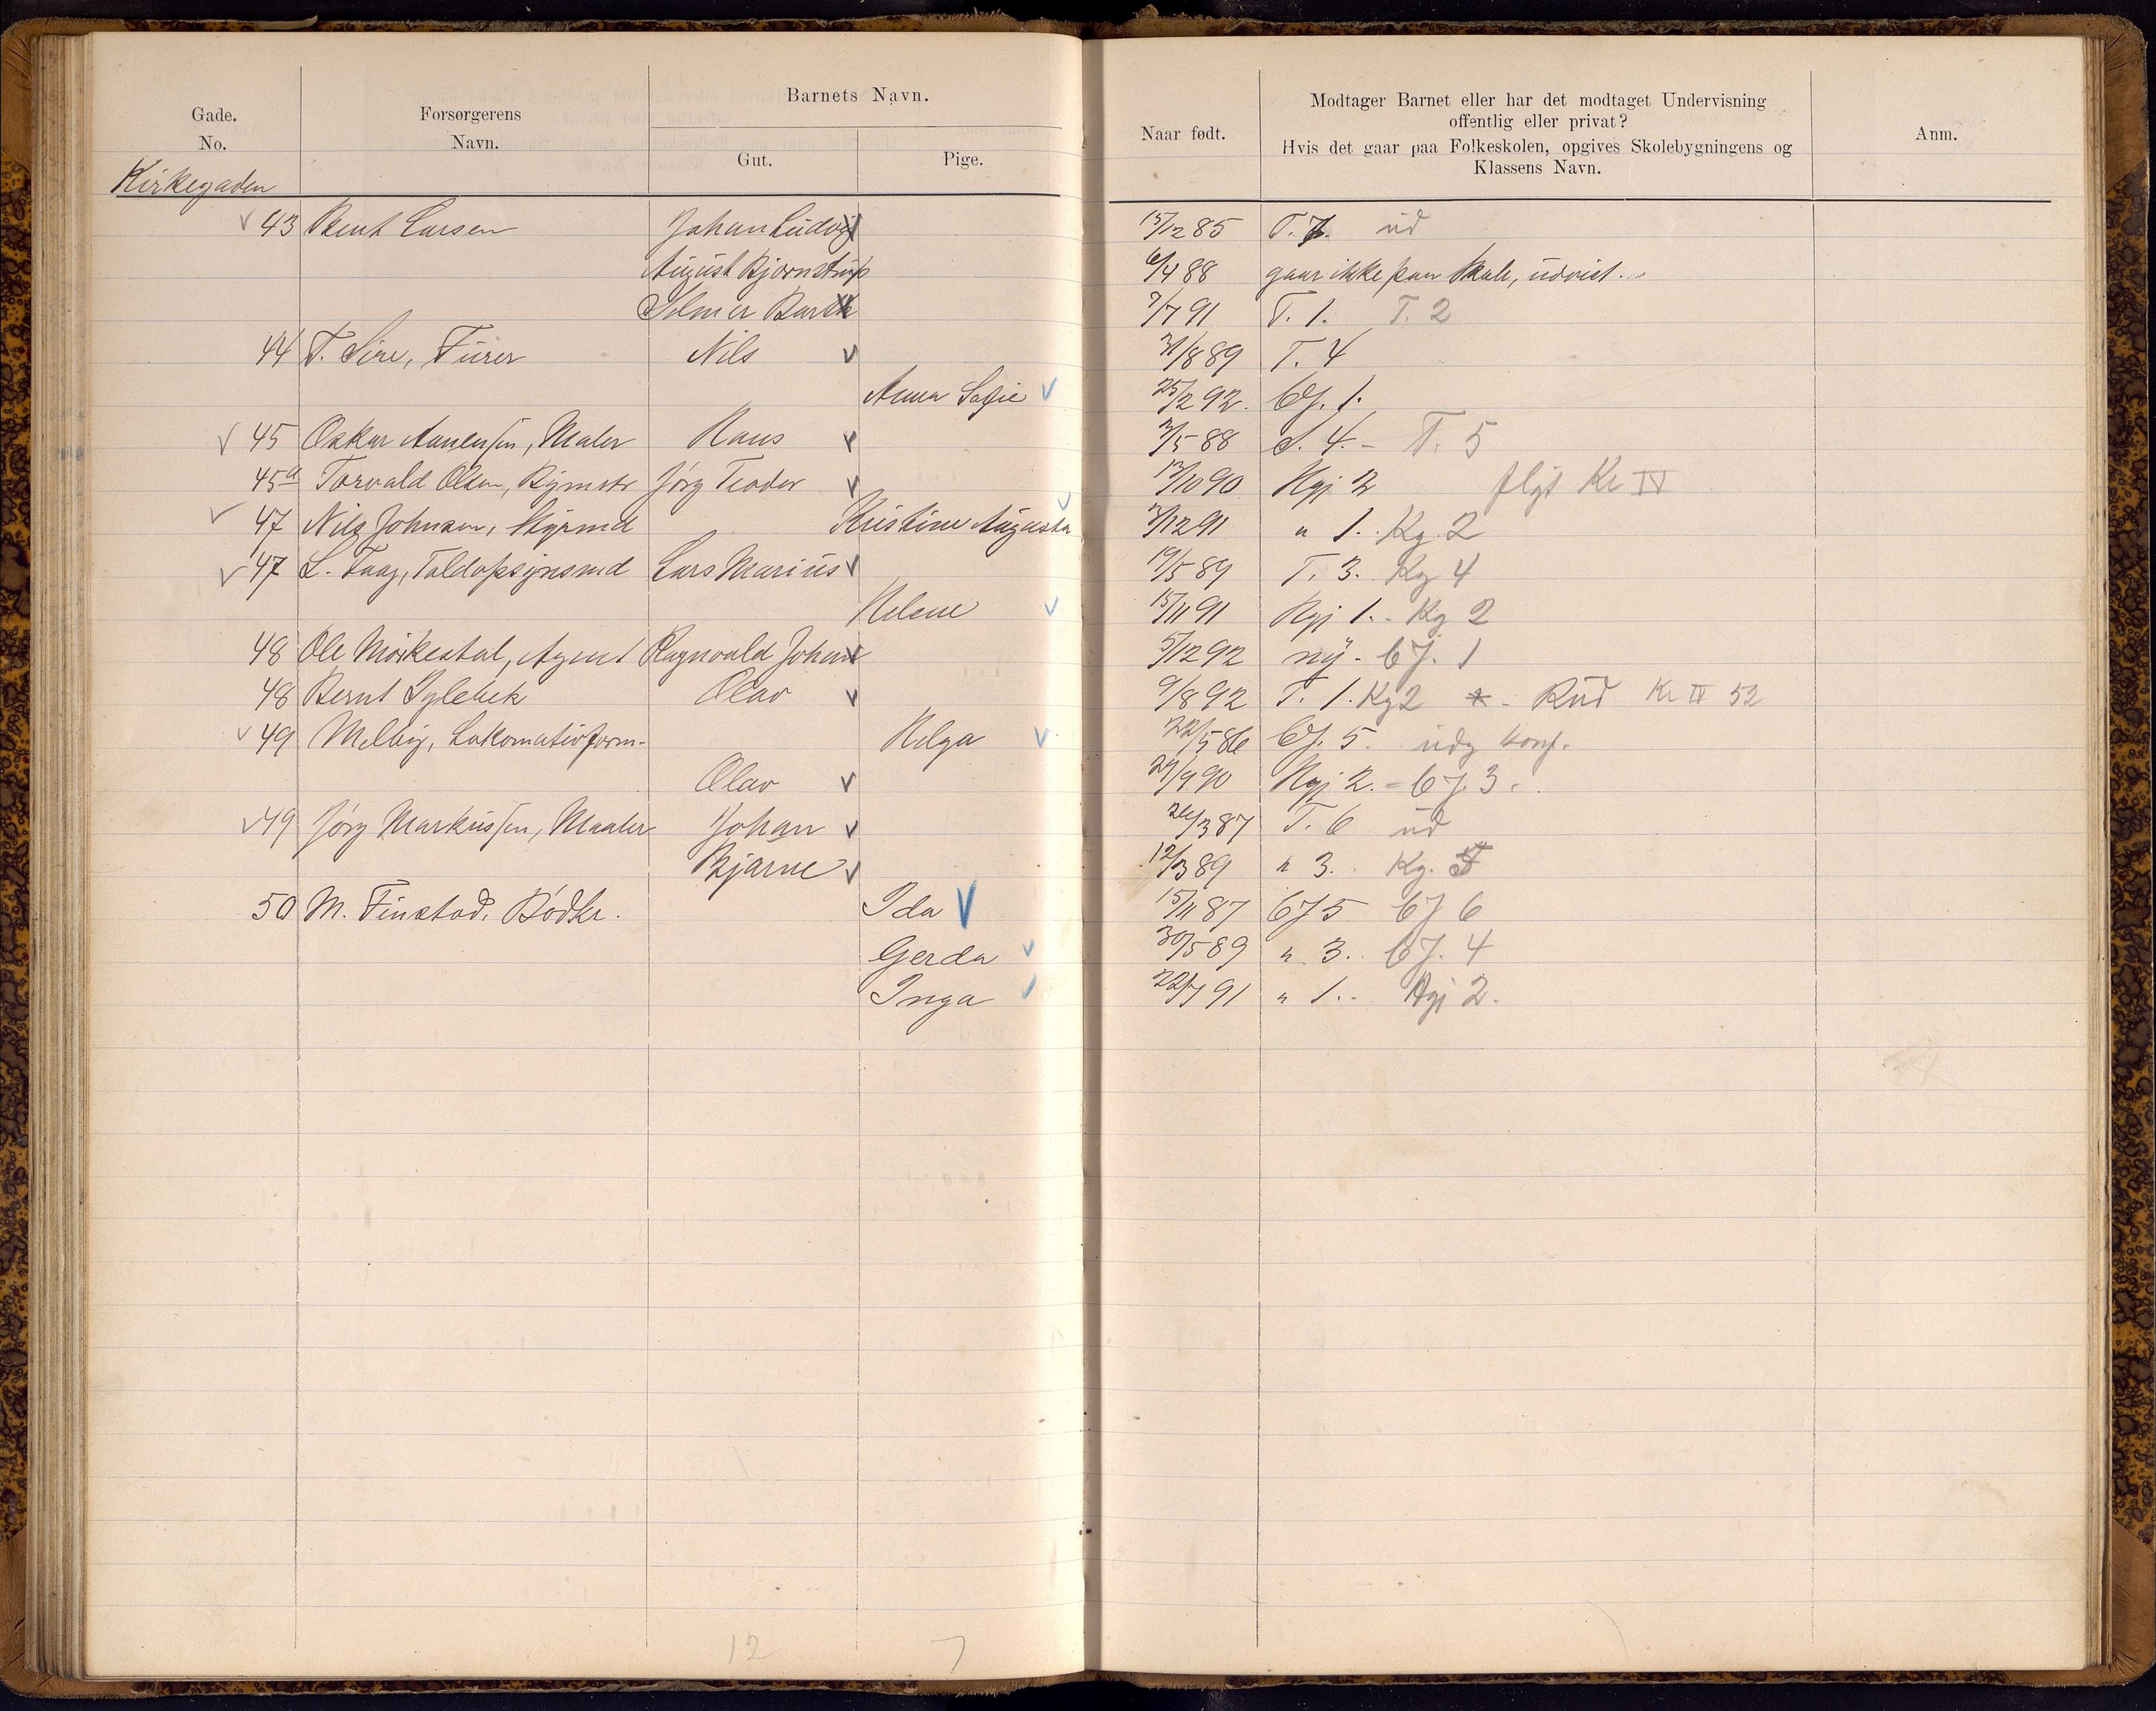 Gade.
No.
Forsørgerens
Navn.
Barnets Navn.
Gut.
Pige.
Naar født.
Modtager Barnet eller har det modtaget Undervisning
offentlig eller privat?
Hvis det gaar paa Folkeskolen, opgives Skolebygningens og
Klassens Navn.
Anm.
Kirkegaden
43 Bent Larsen Johan Ludvig 15/12 85 T. 7. ud
August Bjørnstrup 6/4 88 gaar ikke paa Skole, udvist.
Selmer Barth 9/7 91 T. 1. T. 2
44 T. Sire, Furer Nils 31/8 89 T. 4
Anna Sofie 25/2 92. Cf. 1.
45 Oskar Aanensen, Maler Hans 3/5 88 S. 4. - T. 5
45a Torvald Olsen, Bymstr Jørg Teodor 13/10 90 Hgj 2 flyt Kr IV
47 Nils Johnsen, Styrmd Kristine Augusta 3/12 91 " 1. Kg. 2
47 L. Faag, Toldopsynsmd Lars Marius 19/5 89 T. 3. Kg 4
Helene 15/11 91 Hgj 1. - Kg 2
48 Ole Mørkestøl, Agent Ragnvald Johan 5/12 92 ny - Cf. 1
48 Bernt Sylebek Olav 9/8 92 T. 1. Kg 2 - Rud Kr IV 52
49 Melby, Lokomotivform- Helga 22/5 86 Cf. 5. udg konf.
Olav 29/9 90 Hgj 2. = Cf. 3.
49 Jørg Markussen, Maaler Johan 26/3 87 T. 6 ud
Bjarne 12/3 89 " 3. Kg.
50 M. Finstad, Bødkr. Ida 15/11 87 Cf 5 Cf 6
Gerda 30/5 89 " 3. Cf. 4
Inga 22/7 91 " 1. - Hgj 2.
12 7